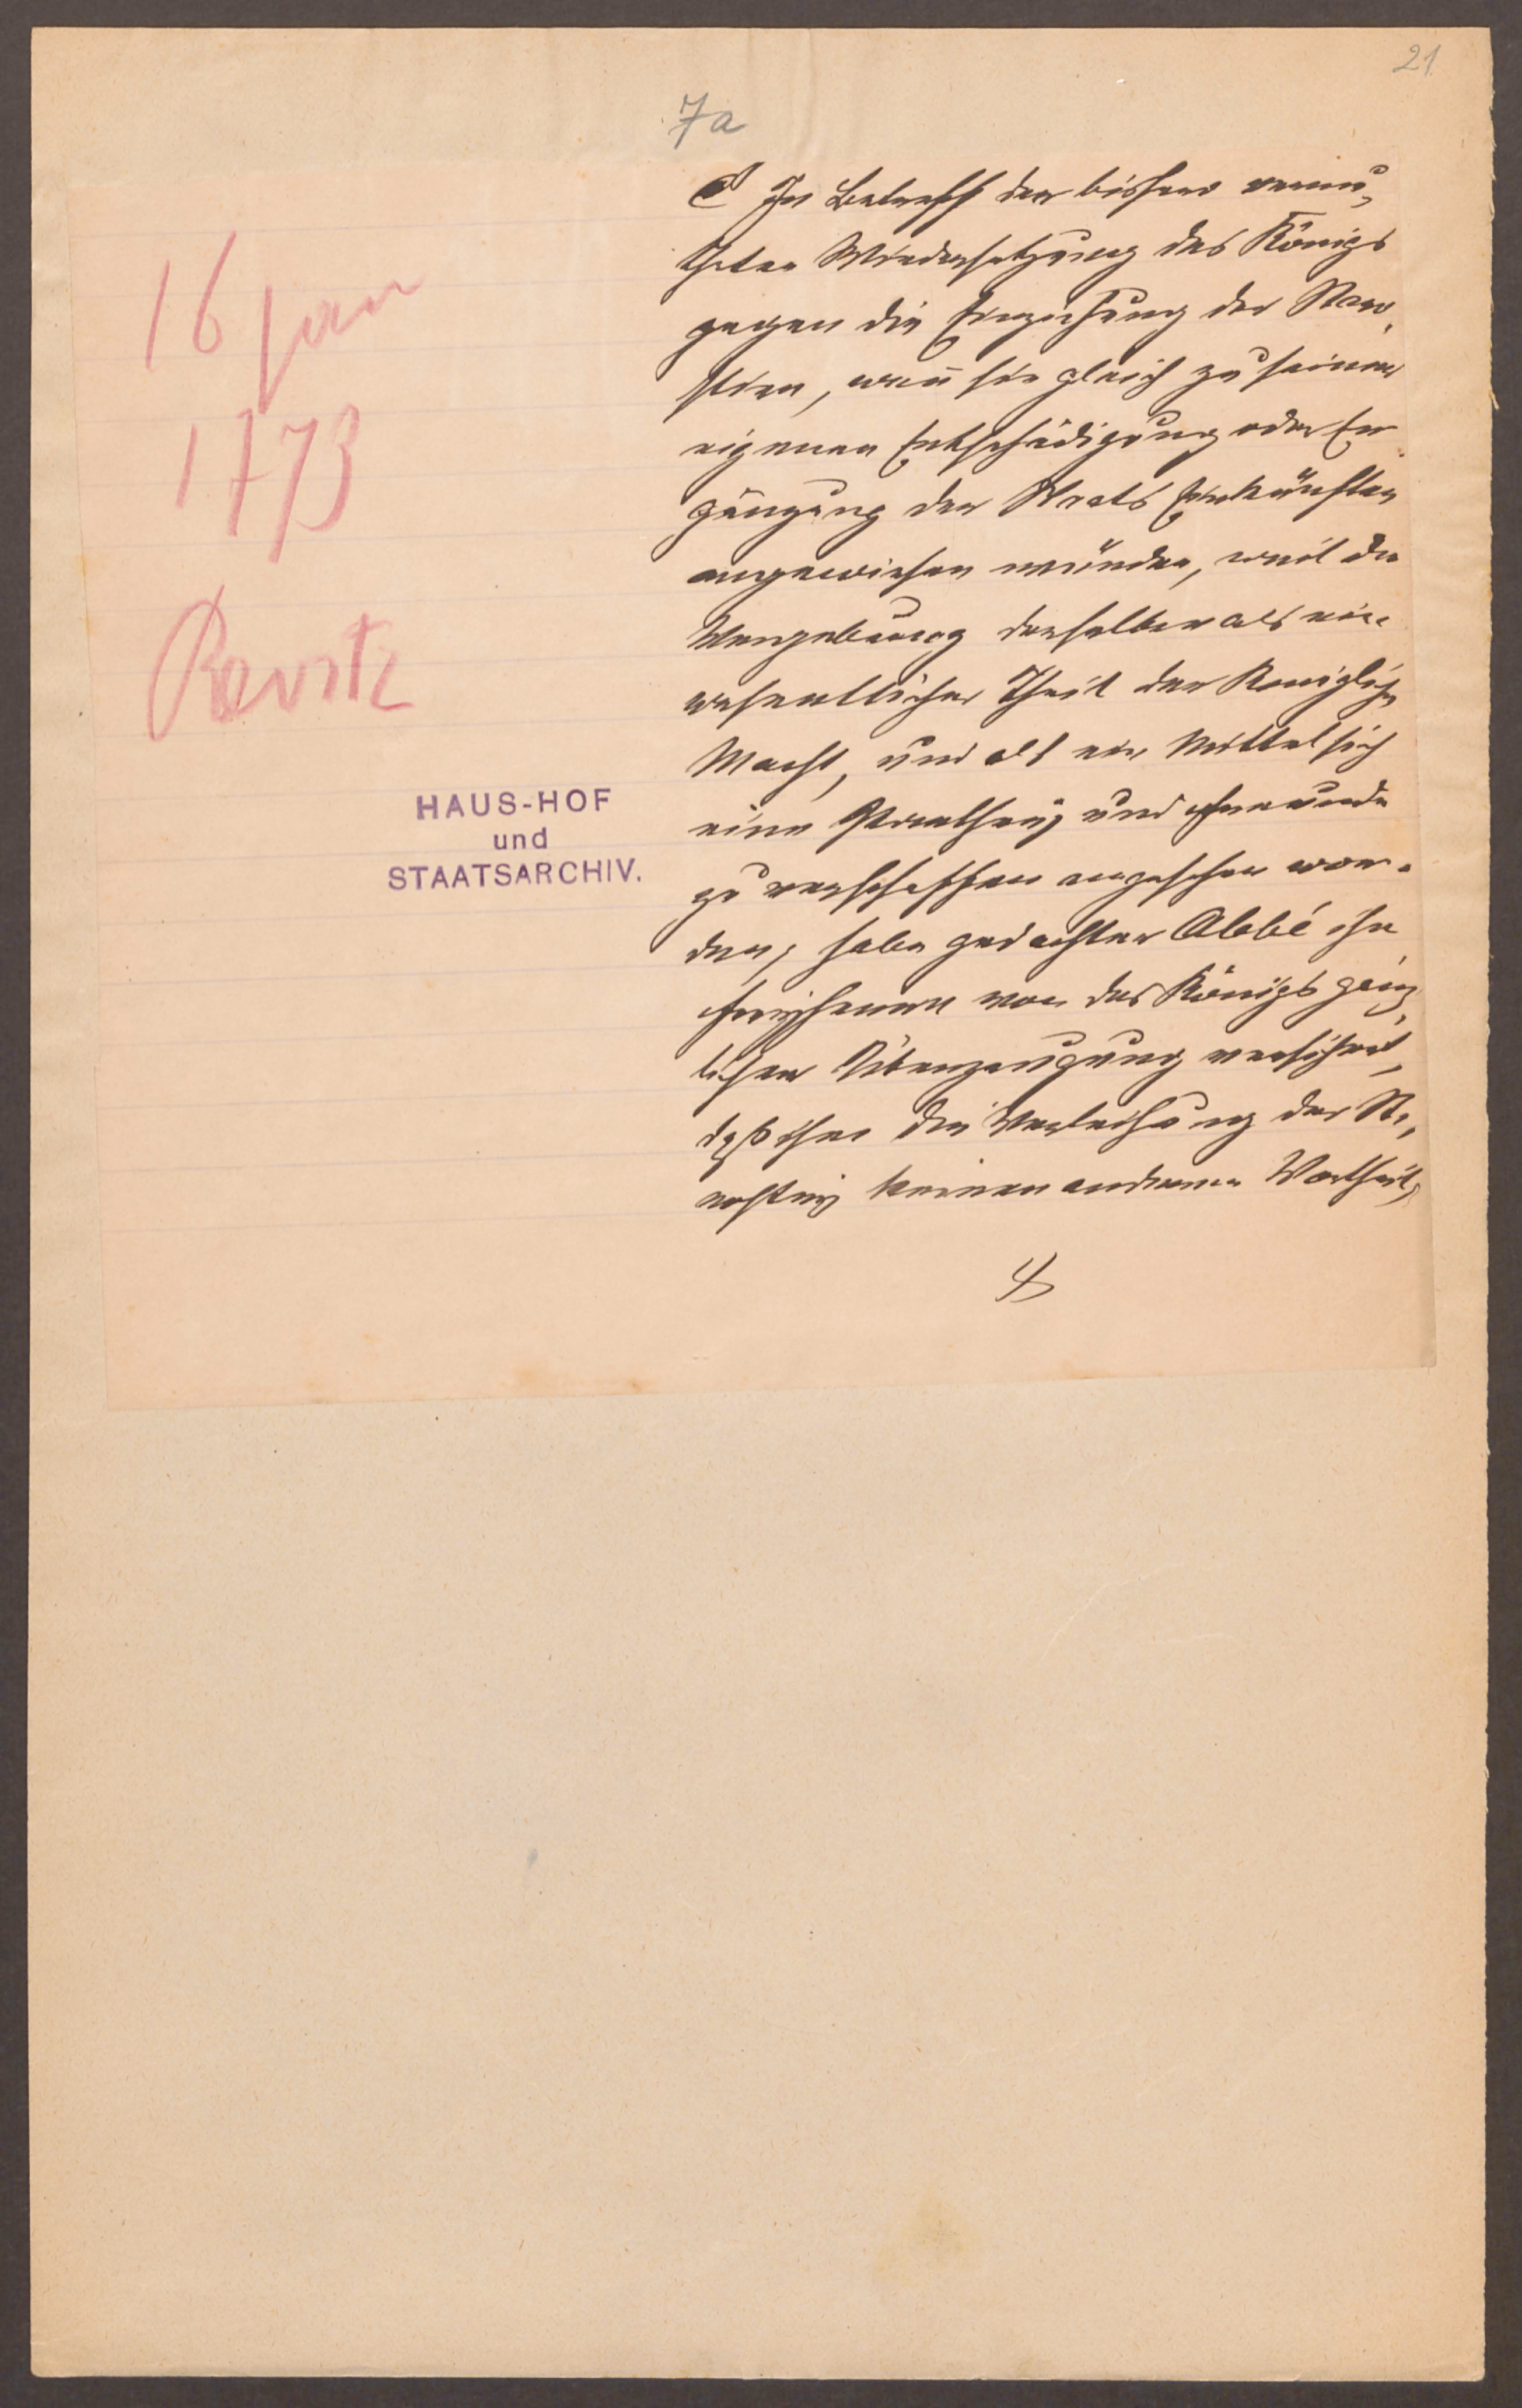 21
7a
16 Jan
1773
HAUS-HOF
und
STAATSARCHIV.
In Betreff der bisher vermu-
theten Wiedersetzung des Königs
gegen die Einziehung der Staro-
stien, weñ sie gleich zu seiner
eigenen Entschädigung oder Er-
gänzung der Staats Einkünften
angewiesen würden, weil die
Vergebung derselben als ein
wesentlicher Theil der Königlichen
Macht, und als ein Mittel sich
eine Parthey und Freunde
zu verschaffen angesehen wor-
den, habe gedachter Abbé ihn
Freyherrn von des Königs gänz-
licher Überzeugung versichert,
daß ihm die Verleihung der St.
rostey keinen anderen Vortheil,